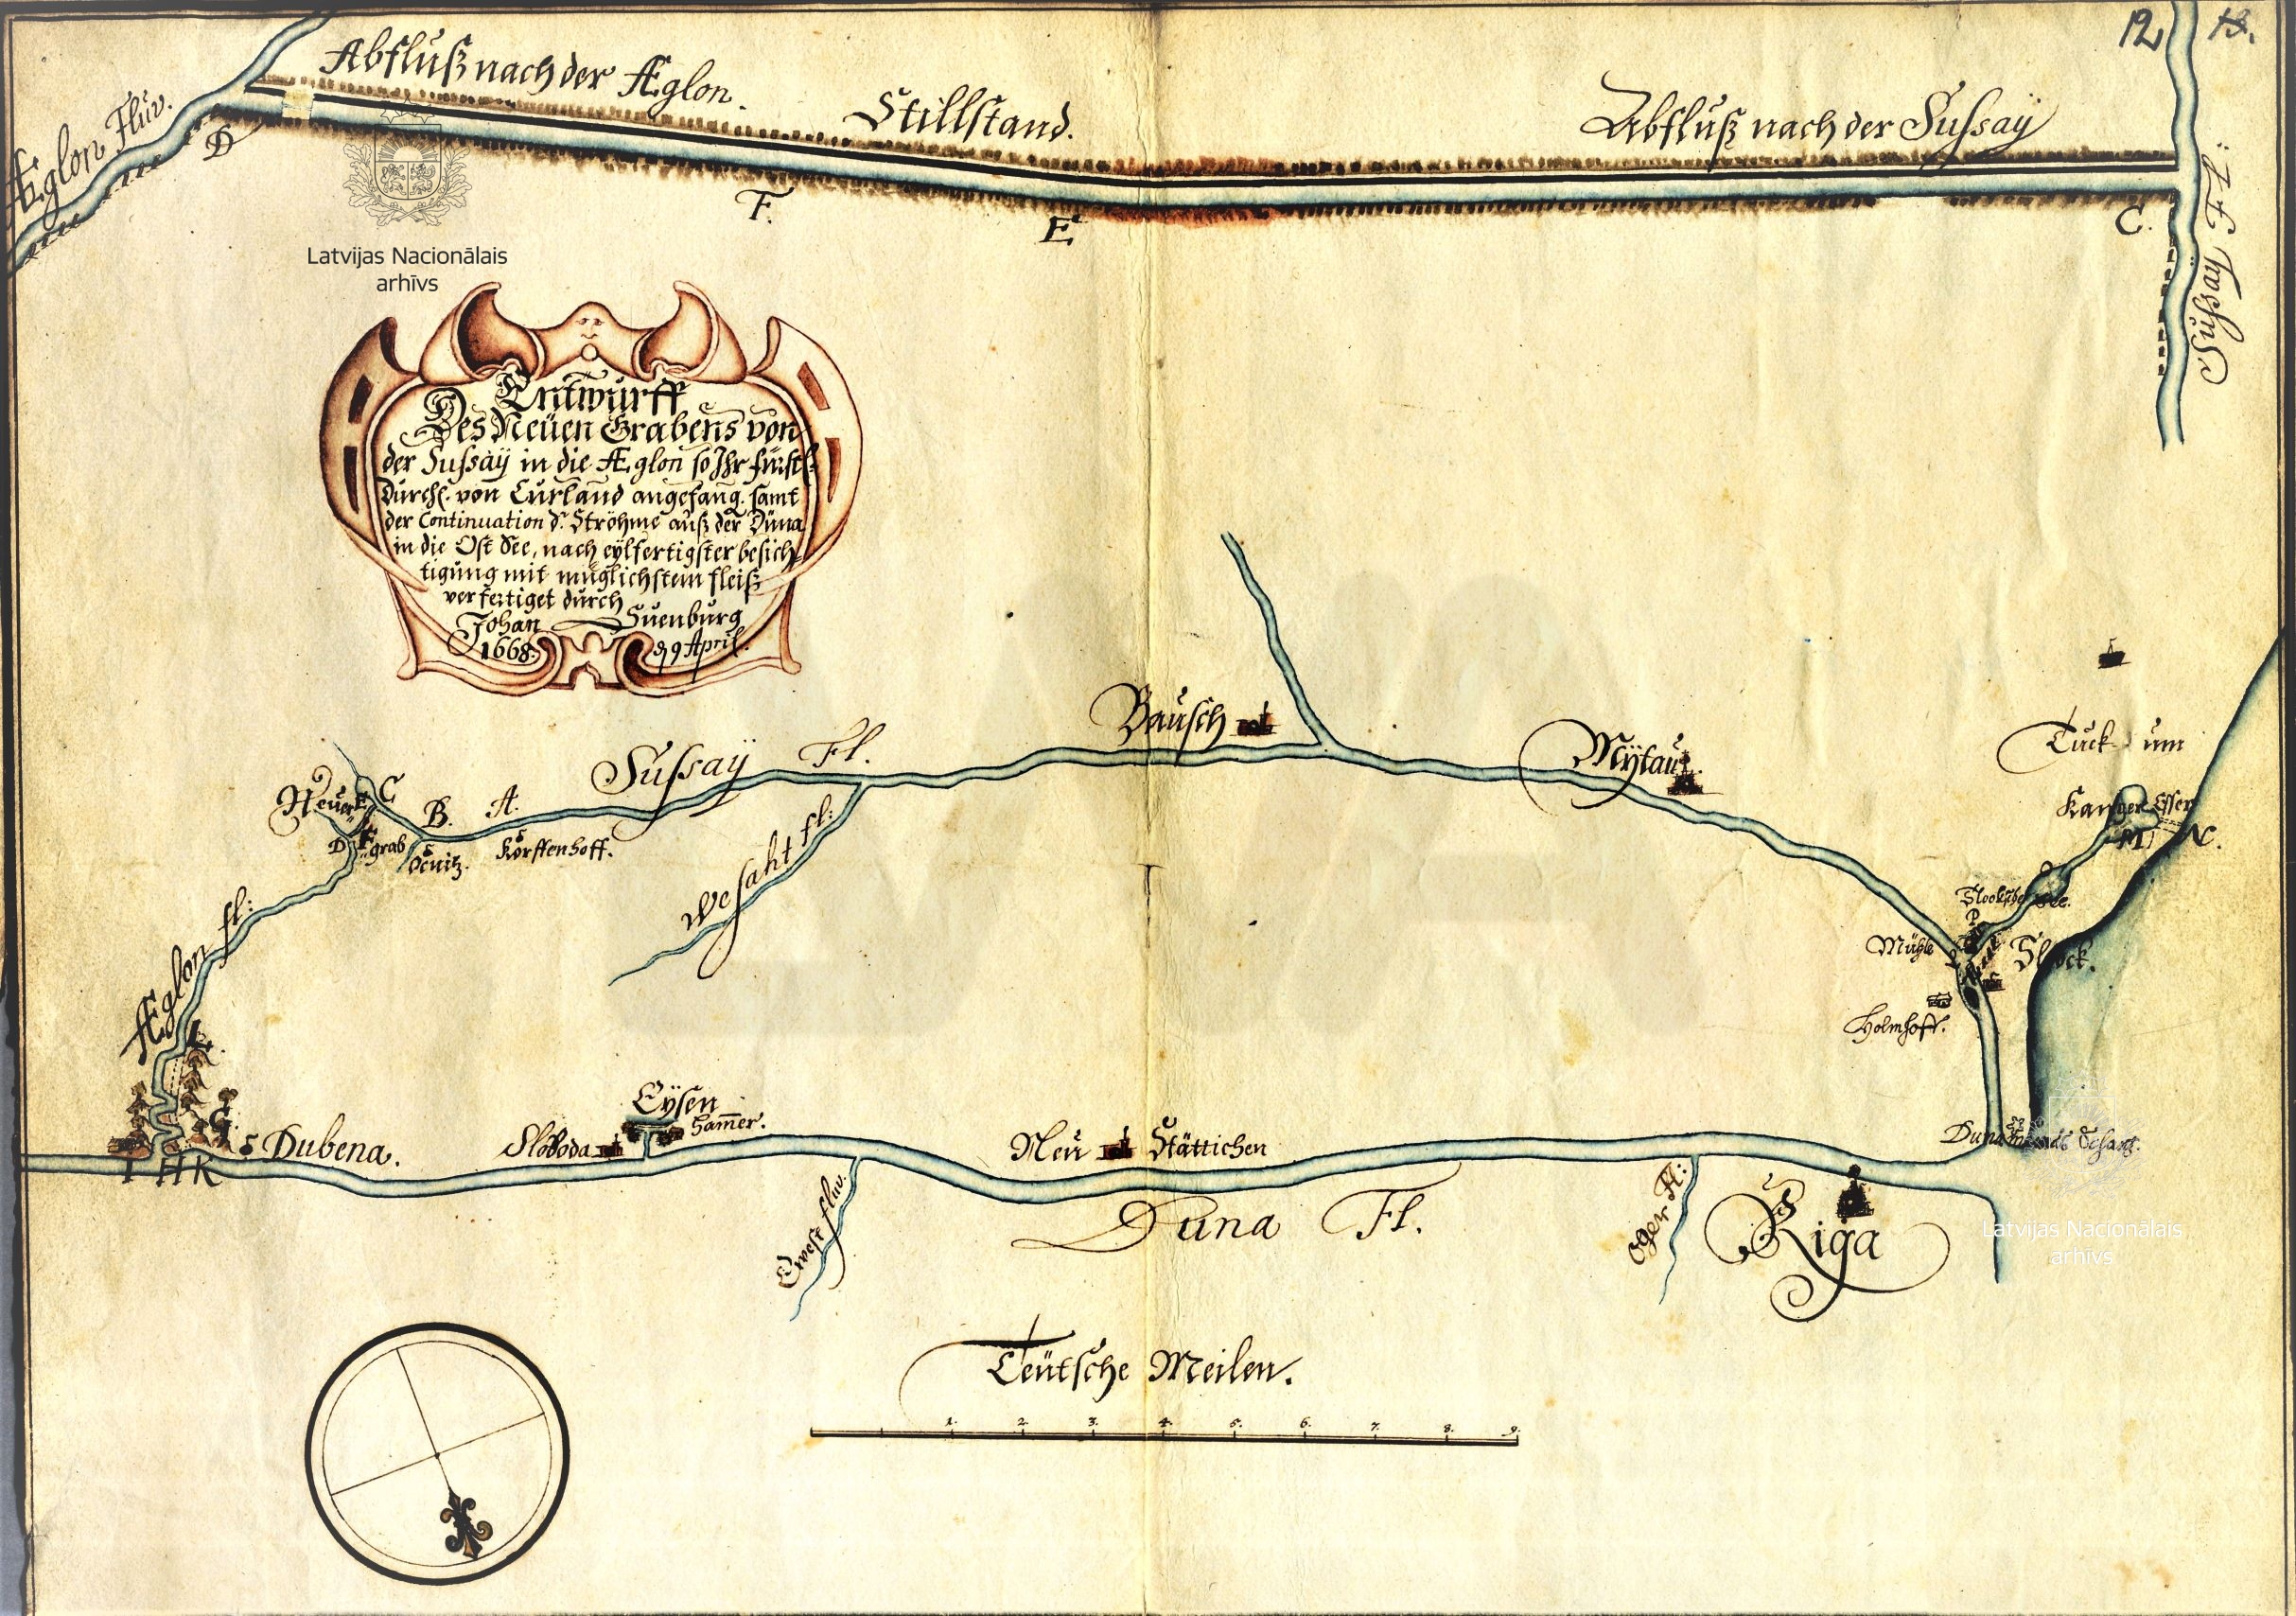 12
Abfluß nach der Æglon.
Stillstand.
Abfluß nach der Sussaÿ
Æglon Fluv.
D
F.
E
C.
Sussaÿ Fl:
Latvijas Nacionālais
arhīvs
Entwurff
Des Neüen Grabens von
der Sussaÿ in die Æglon so Ihr fürstl:
Dürchl. von Cürland angefang. samt
der Continuation d. Ströhme auß der Düna
in die Ost See, nach eÿlfertigster besich-
tigung mit müglichstem fleiß
verfertiget durch
Johan Süenburg
1668. 9 April.
Baüsch
Mÿtaü.
Tuckum
Sussaÿ Fl.
Neüer
C
B.
A.
D
F
grab
Ocnitz.
Körffenhoff.
Wesaht fl:
Kanger Esser
M
N.
Slooksche See.
P
Mühle
L
Slock.
Holmhoff.
Æglon fl:
L.
G
I H K
Dubena.
Sloboda
Eÿsen
Ham̄er.
Neü Stättichen
Dunamunds Schantz.
Ewest fluv.
Duna Fl.
Oger Fl:
Riga
Latvijas Nacionālais
arhīvs
Teütsche Meilen.
1. 2. 3. 4. 5. 6. 7. 8. 9.